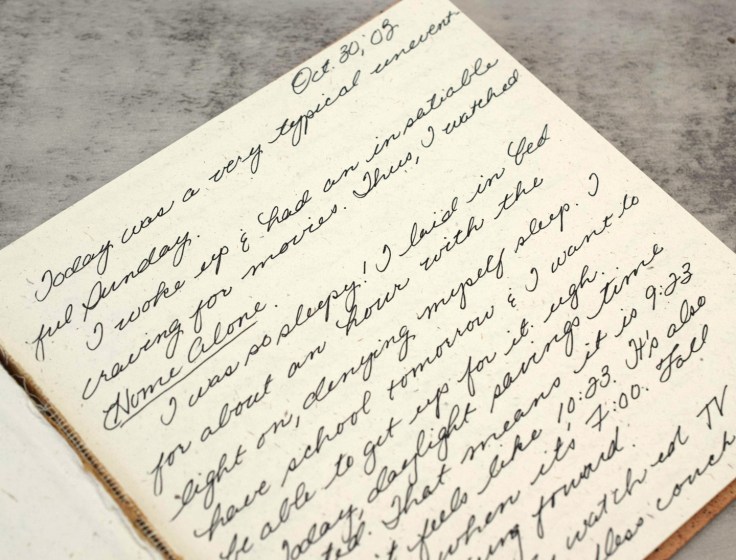 Oct. 30, '03
Today was a very typical unevent-
ful Sunday.
I woke up & had an insatiable
craving for movies. Thus, I watched
Home Alone.
I was so sleepy! I laid in bed
for about an hour with the
light on, denying myself sleep. I
have school tomorrow & I want to
be able to get up for it. ugh.
Today, daylight savings time
ted. That means it is 9:23
it feels like 10:23. It's also
when it's 7:00. Fall
ing forward.
watch TV
less couch